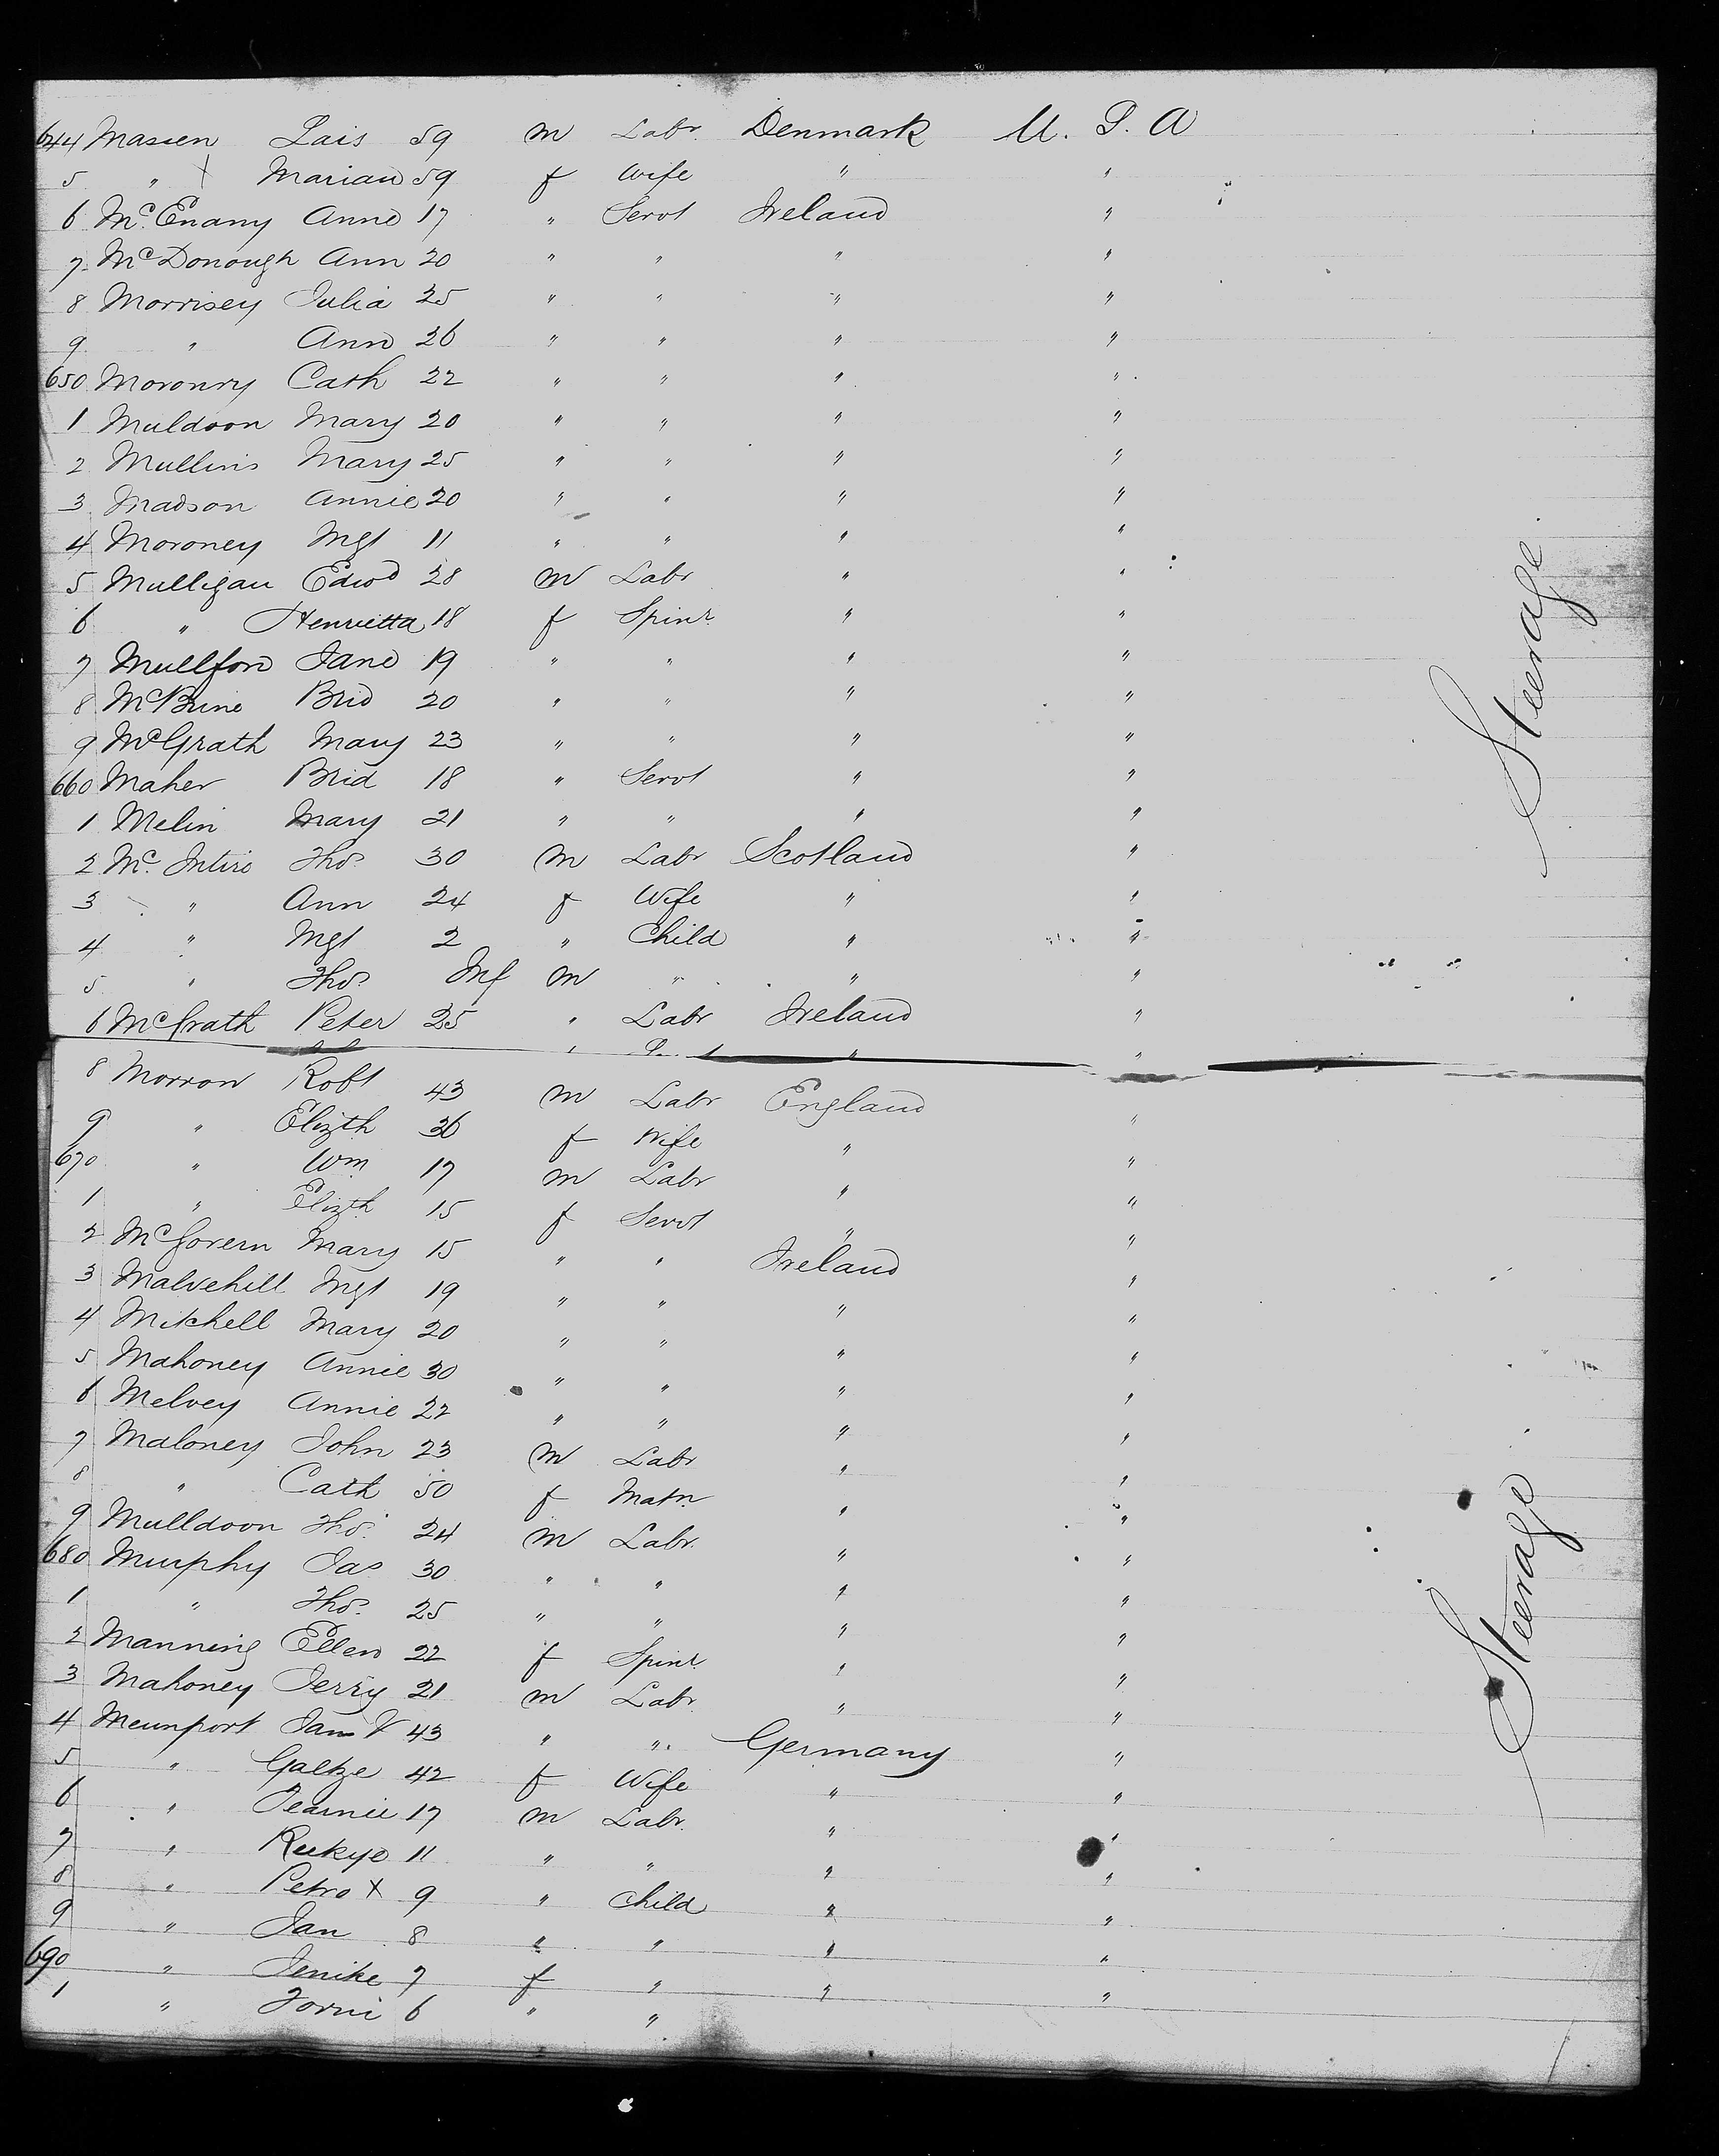 644 Massen Lais 59 m Labr. Denmark U. S. A
5 " X Marian 59 f Wife " "
6 McEnany Anne 17 " Servt Ireland "
7 McDonough Ann 20 " " " "
8 Morrisey Julia 25 " " " "
9 " Ann 26 " " " "
650 Moronry Cath 22 " " " "
1 Muldoon Mary 20 " " " "
2 Mullins Mary 25 " " " "
3 Madson Annie 20 " " " "
4 Moroney Mgt 11 " " " "
5 Mulligan Edwd 28 m Labr " "
6 " Henrietta 18 f Spinr. " "
7 Mullford Jane 19 " " " "
8 McBrine Brid 20 " " " "
9 McGrath Mary 23 " " " "
660 Maher Brid 18 " Servt " "
1 Melin Mary 21 " " " "
2 Mc. Intire Thos. 30 m Labr Scotland "
3 " Ann 24 f Wife " "
4 " Mgt 2 " Child " "
5 " Thos. Inf m " " "
6 McGrath Peter 25 " Labr Ireland "
" " "
8 Morron Robt 43 m Labr England "
9 " Elizth 36 f Wife " "
670 " Wm 17 m Labr " "
1 " Elizth 15 f Servt " "
2 McGovern Mary 15 " " Ireland "
3 Malvehill Mgt 19 " " " "
4 Mitchell Mary 20 " " " "
5 Mahoney Annie 30 " " " "
6 Melvey Annie 22 " " " "
7 Maloney John 23 m Labr " "
8 " Cath 50 f Matn. " "
9 Mulldoon Thos. 24 m Labr. " "
680 Murphy Jas 30 " " " "
1 " Thos. 25 " " " "
2 Manning Ellen 22 f Spinr. " "
3 Mahoney Jerry 21 m Labr. " "
4 Meunport Jam V 43 " " Germany "
5 " Galtze 42 f Wife " "
6 " Jearnie 17 m Labr. " "
7 " Reekye 11 " " " "
8 " Petro X 9 " Child " "
9 " Jan 8 " " " "
690 " Jenike 7 f " " "
1 " Forni 6 " "
Steerage
Steerage